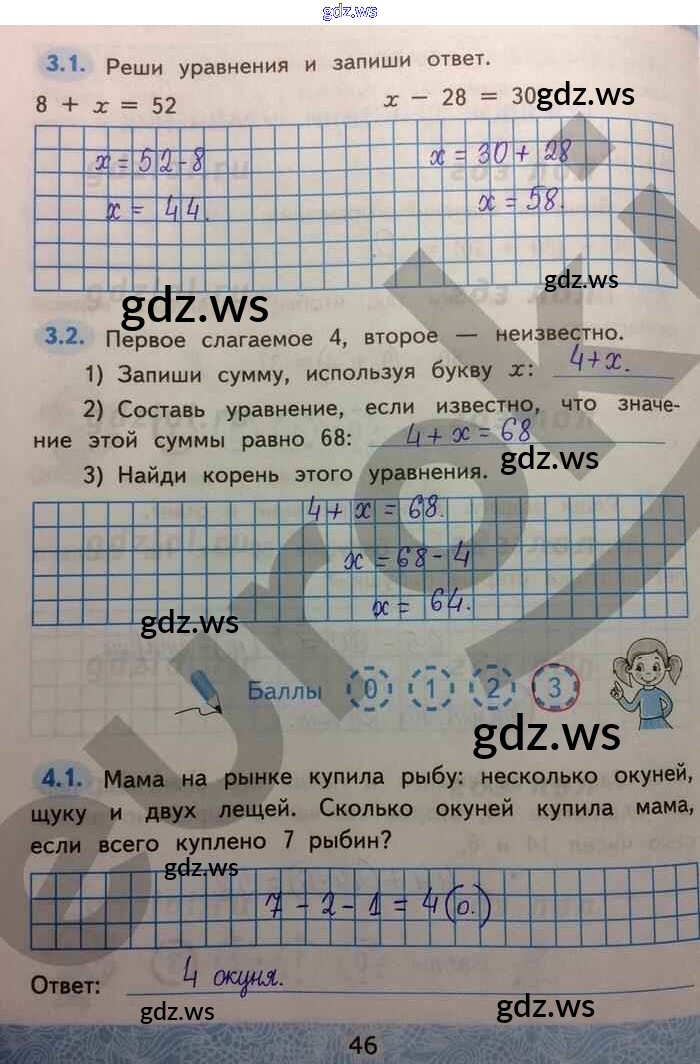 gdz.ws
3.1. Реши уравнения и запиши ответ.
8 + x = 52 x − 28 = 30 gdz.ws
x = 52 - 8 x = 30 + 28
x = 44. x = 58.
gdz.ws
gdz.ws
3.2. Первое слагаемое 4, второе — неизвестно.
1) Запиши сумму, используя букву x: 4 + x.
2) Составь уравнение, если известно, что значе-
ние этой суммы равно 68: 4 + x = 68
gdz.ws
3) Найди корень этого уравнения.
4 + x = 68.
x = 68 - 4
x = 64.
gdz.ws
Баллы 0 1 2 3
gdz.ws
4.1. Мама на рынке купила рыбу: несколько окуней,
щуку и двух лещей. Сколько окуней купила мама,
если всего куплено 7 рыбин?
gdz.ws
7 - 2 - 1 = 4 (о.)
Ответ: 4 окуня.
gdz.ws gdz.ws
46
euroki